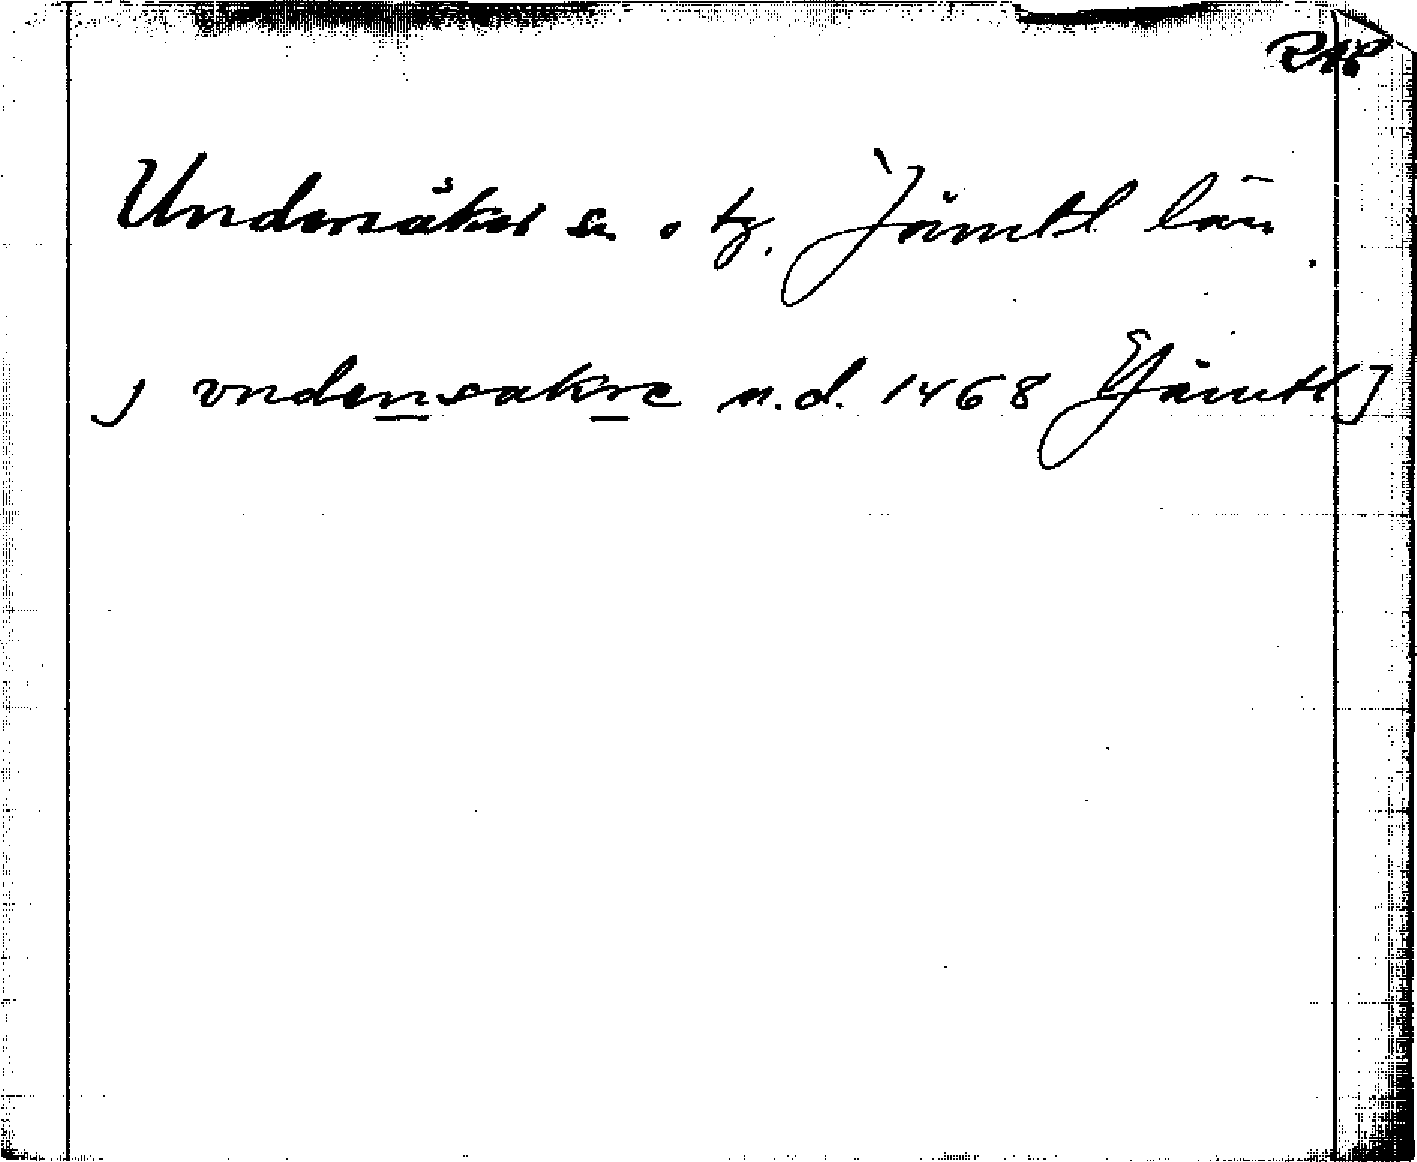 RAP
Undersåker sn. o tg. Jämtl län.
j vndensakre u.d. 1468 [Jämtl]